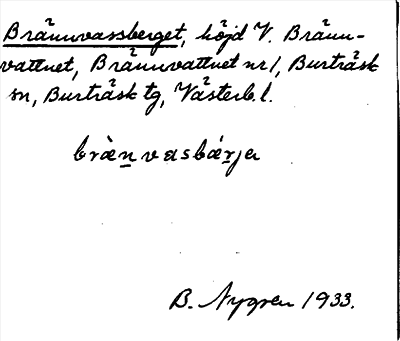 Brännvassberget, höjd V. Bränn-
vattnet, Brännvattnet nr 1, Burträsk
sn, Burträsk tg, Västerb. l.
bræ̀n vasbǽrja
B. Nygren 1933.